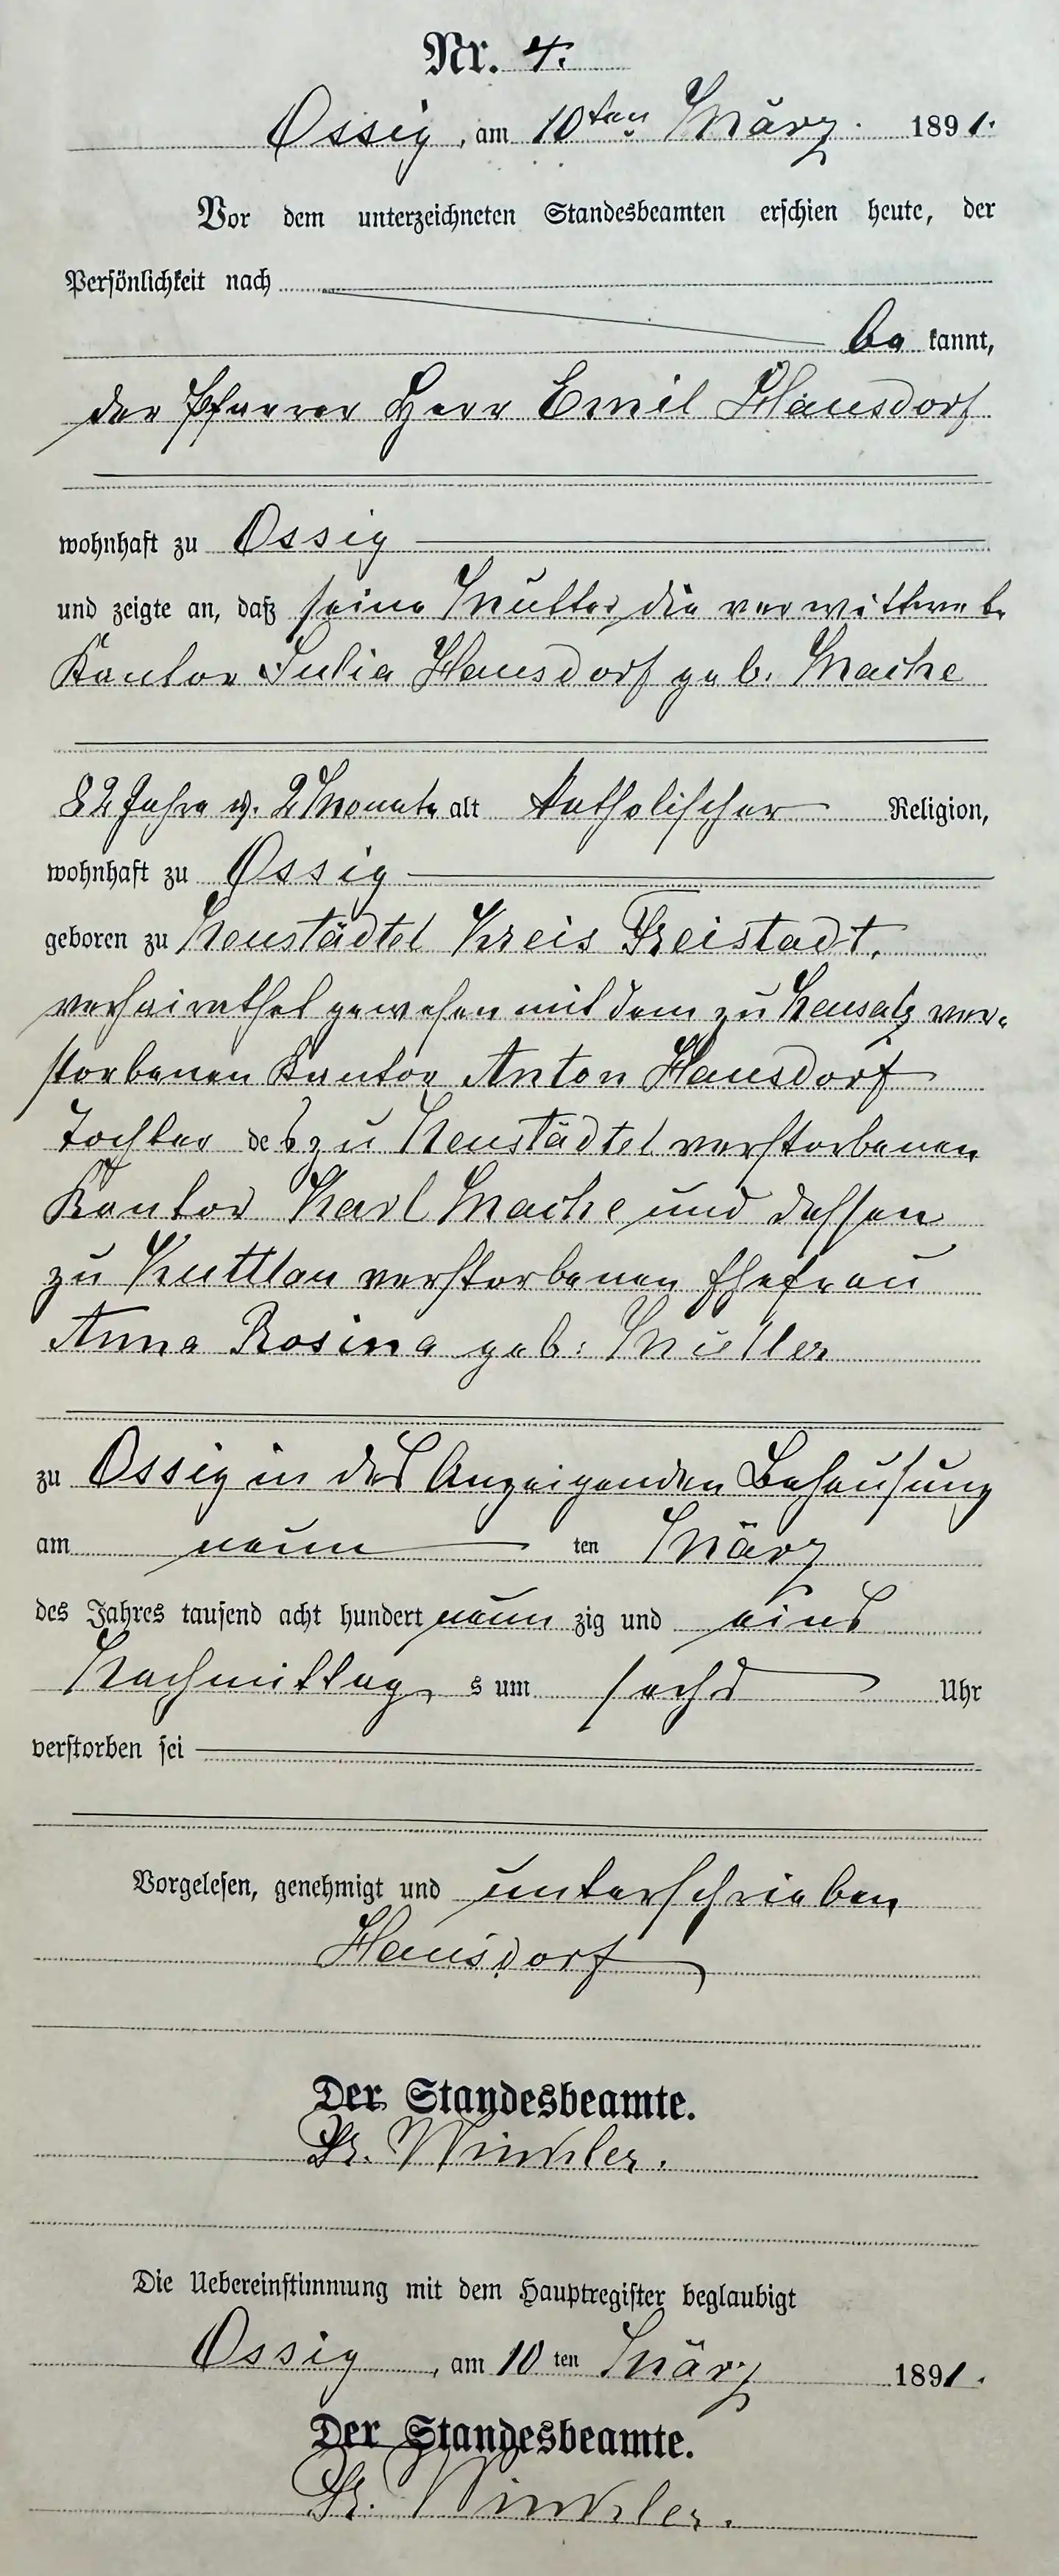 Nr. 4.
Ossig, am 10ten März 1891.
Vor dem unterzeichneten Standesbeamten erschien heute, der
Persönlichkeit nach
be kannt,
der Pfarrer Herr Emil Hausdorf
wohnhaft zu Ossig
und zeigte an, daß seine Mutter die verwittwete
Kantor Julia Hausdorf geb. Mache
82 Jahre u. 2 Monate alt katholischer Religion,
wohnhaft zu Ossig
geboren zu Neustädtel Kreis Freistadt,
verheirathet gewesen mit dem zu Neusalz ver-
storbenen Kantor Anton Hausdorf
Tochter des zu Neustädtel verstorbenen
Kantor Karl Mache und dessen
zu Kuttlau verstorbenen Ehefrau
Anna Rosina geb. Müller
zu Ossig in des Anzeigenden Behausung
am neun ten März
des Jahres tausend acht hundert neun zig und eins
Nachmittag s um sechs Uhr
verstorben sei
Vorgelesen, genehmigt und unterschrieben
Hausdorf
Der Standesbeamte.
Fr. Winkler.
Die Uebereinstimmung mit dem Hauptregister beglaubigt
Ossig, am 10 ten März 1891.
Der Standesbeamte.
Fr. Winkler.